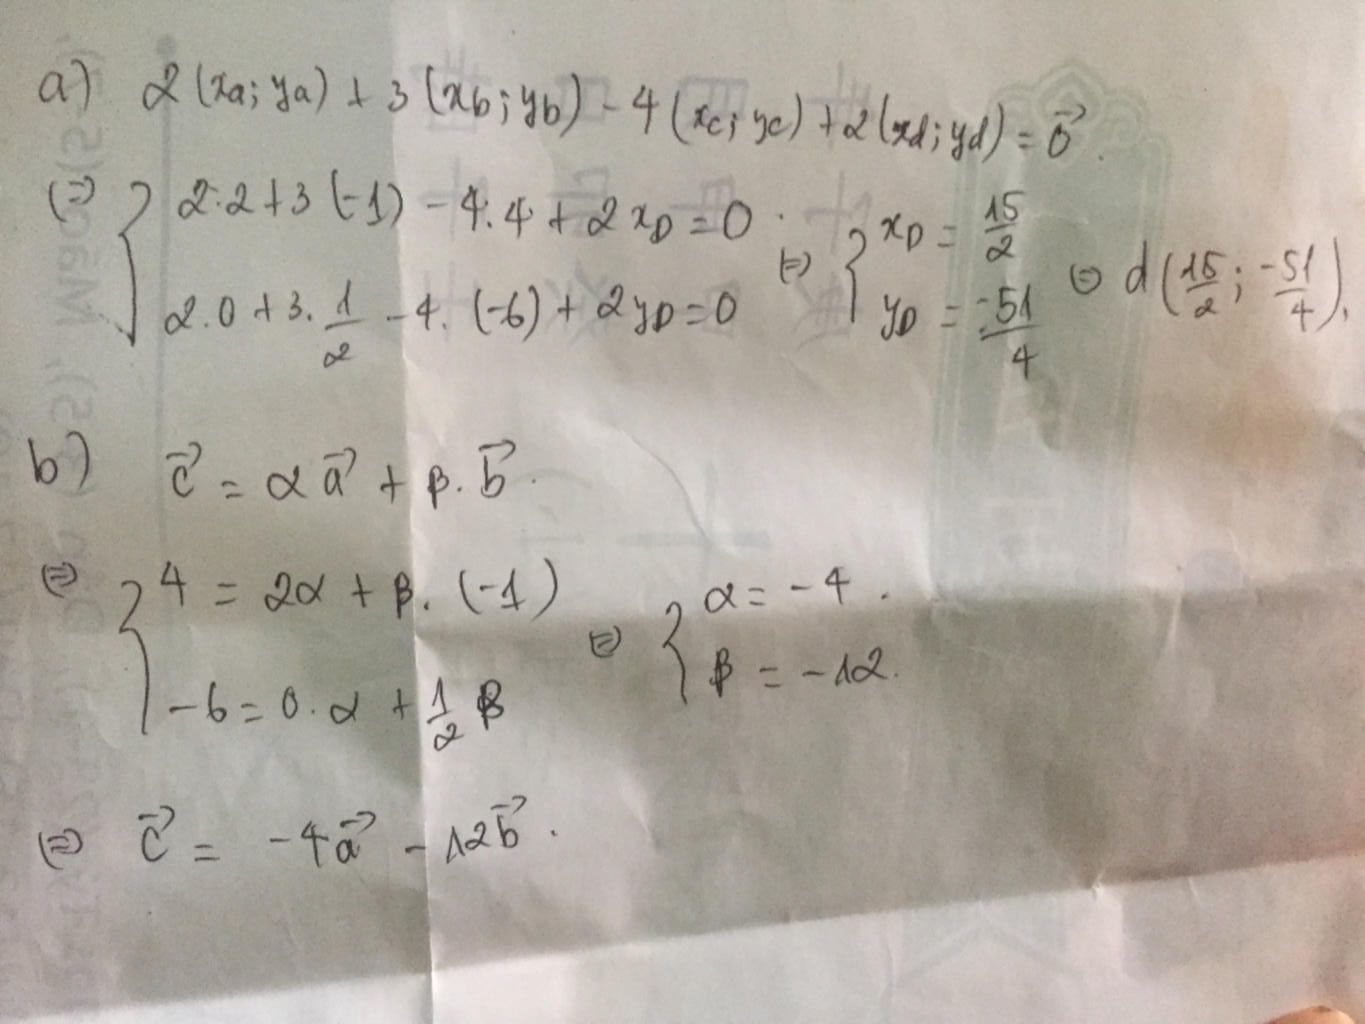 a) 2(xa; ya) + 3(xb; yb) - 4(xc; yc) + 2(xd; yd) = 0⃗.
(=) { 2.2 + 3(-1) - 4.4 + 2xD = 0 . (=) { xD = 15/2
2.0 + 3.1/2 - 4.(-6) + 2yD = 0 yD = -51/4 (=) d(15/2; -51/4).
b) c⃗ = αa⃗ + β.b⃗.
(=) { 4 = 2α + β.(-1) (=) { α = -4.
-6 = 0.α + 1/2 β β = -12.
(=) c⃗ = -4a⃗ - 12b⃗.